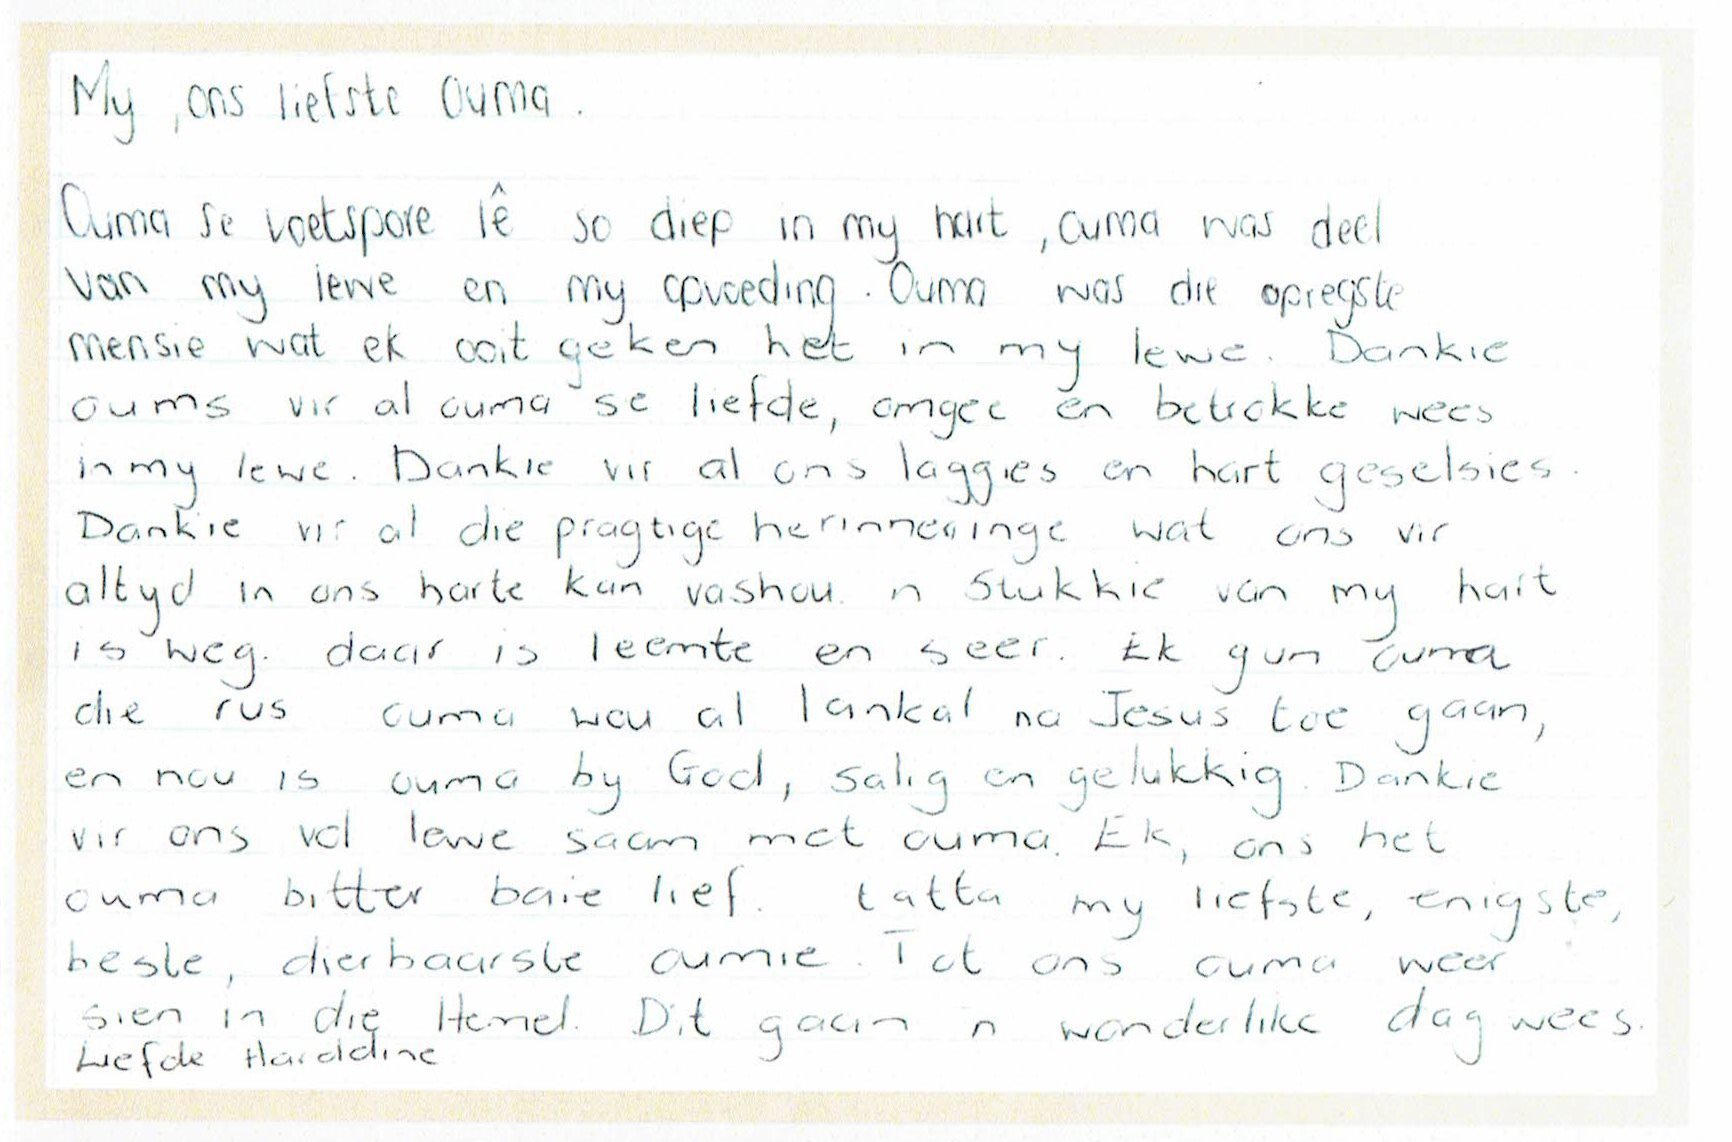 My , ons liefste Ouma .
Ouma se voetspore lê so diep in my hart , ouma was deel
van my lewe en my opvoeding . Ouma was die opregste
mensie wat ek ooit geken het in my lewe . Dankie
oums vir al ouma se liefde, omgee en betrokke wees
in my lewe . Dankie vir al ons laggies en hart geselsies .
Dankie vir al die pragtige herinneringe wat ons vir
altyd in ons harte kan vashou . n Stukkie van my hart
is weg . daar is leemte en seer . Ek gun ouma
die rus ouma wou al lankal na Jesus toe gaan,
en nou is ouma by God, salig en gelukkig . Dankie
vir ons vol lewe saam met ouma . Ek, ons het
ouma bitter baie lief . tatta my liefste, enigste,
beste, dierbaarste oumie . Tot ons ouma weer
sien in die Hemel . Dit gaan 'n wonderlike dag wees .
Liefde Harddine